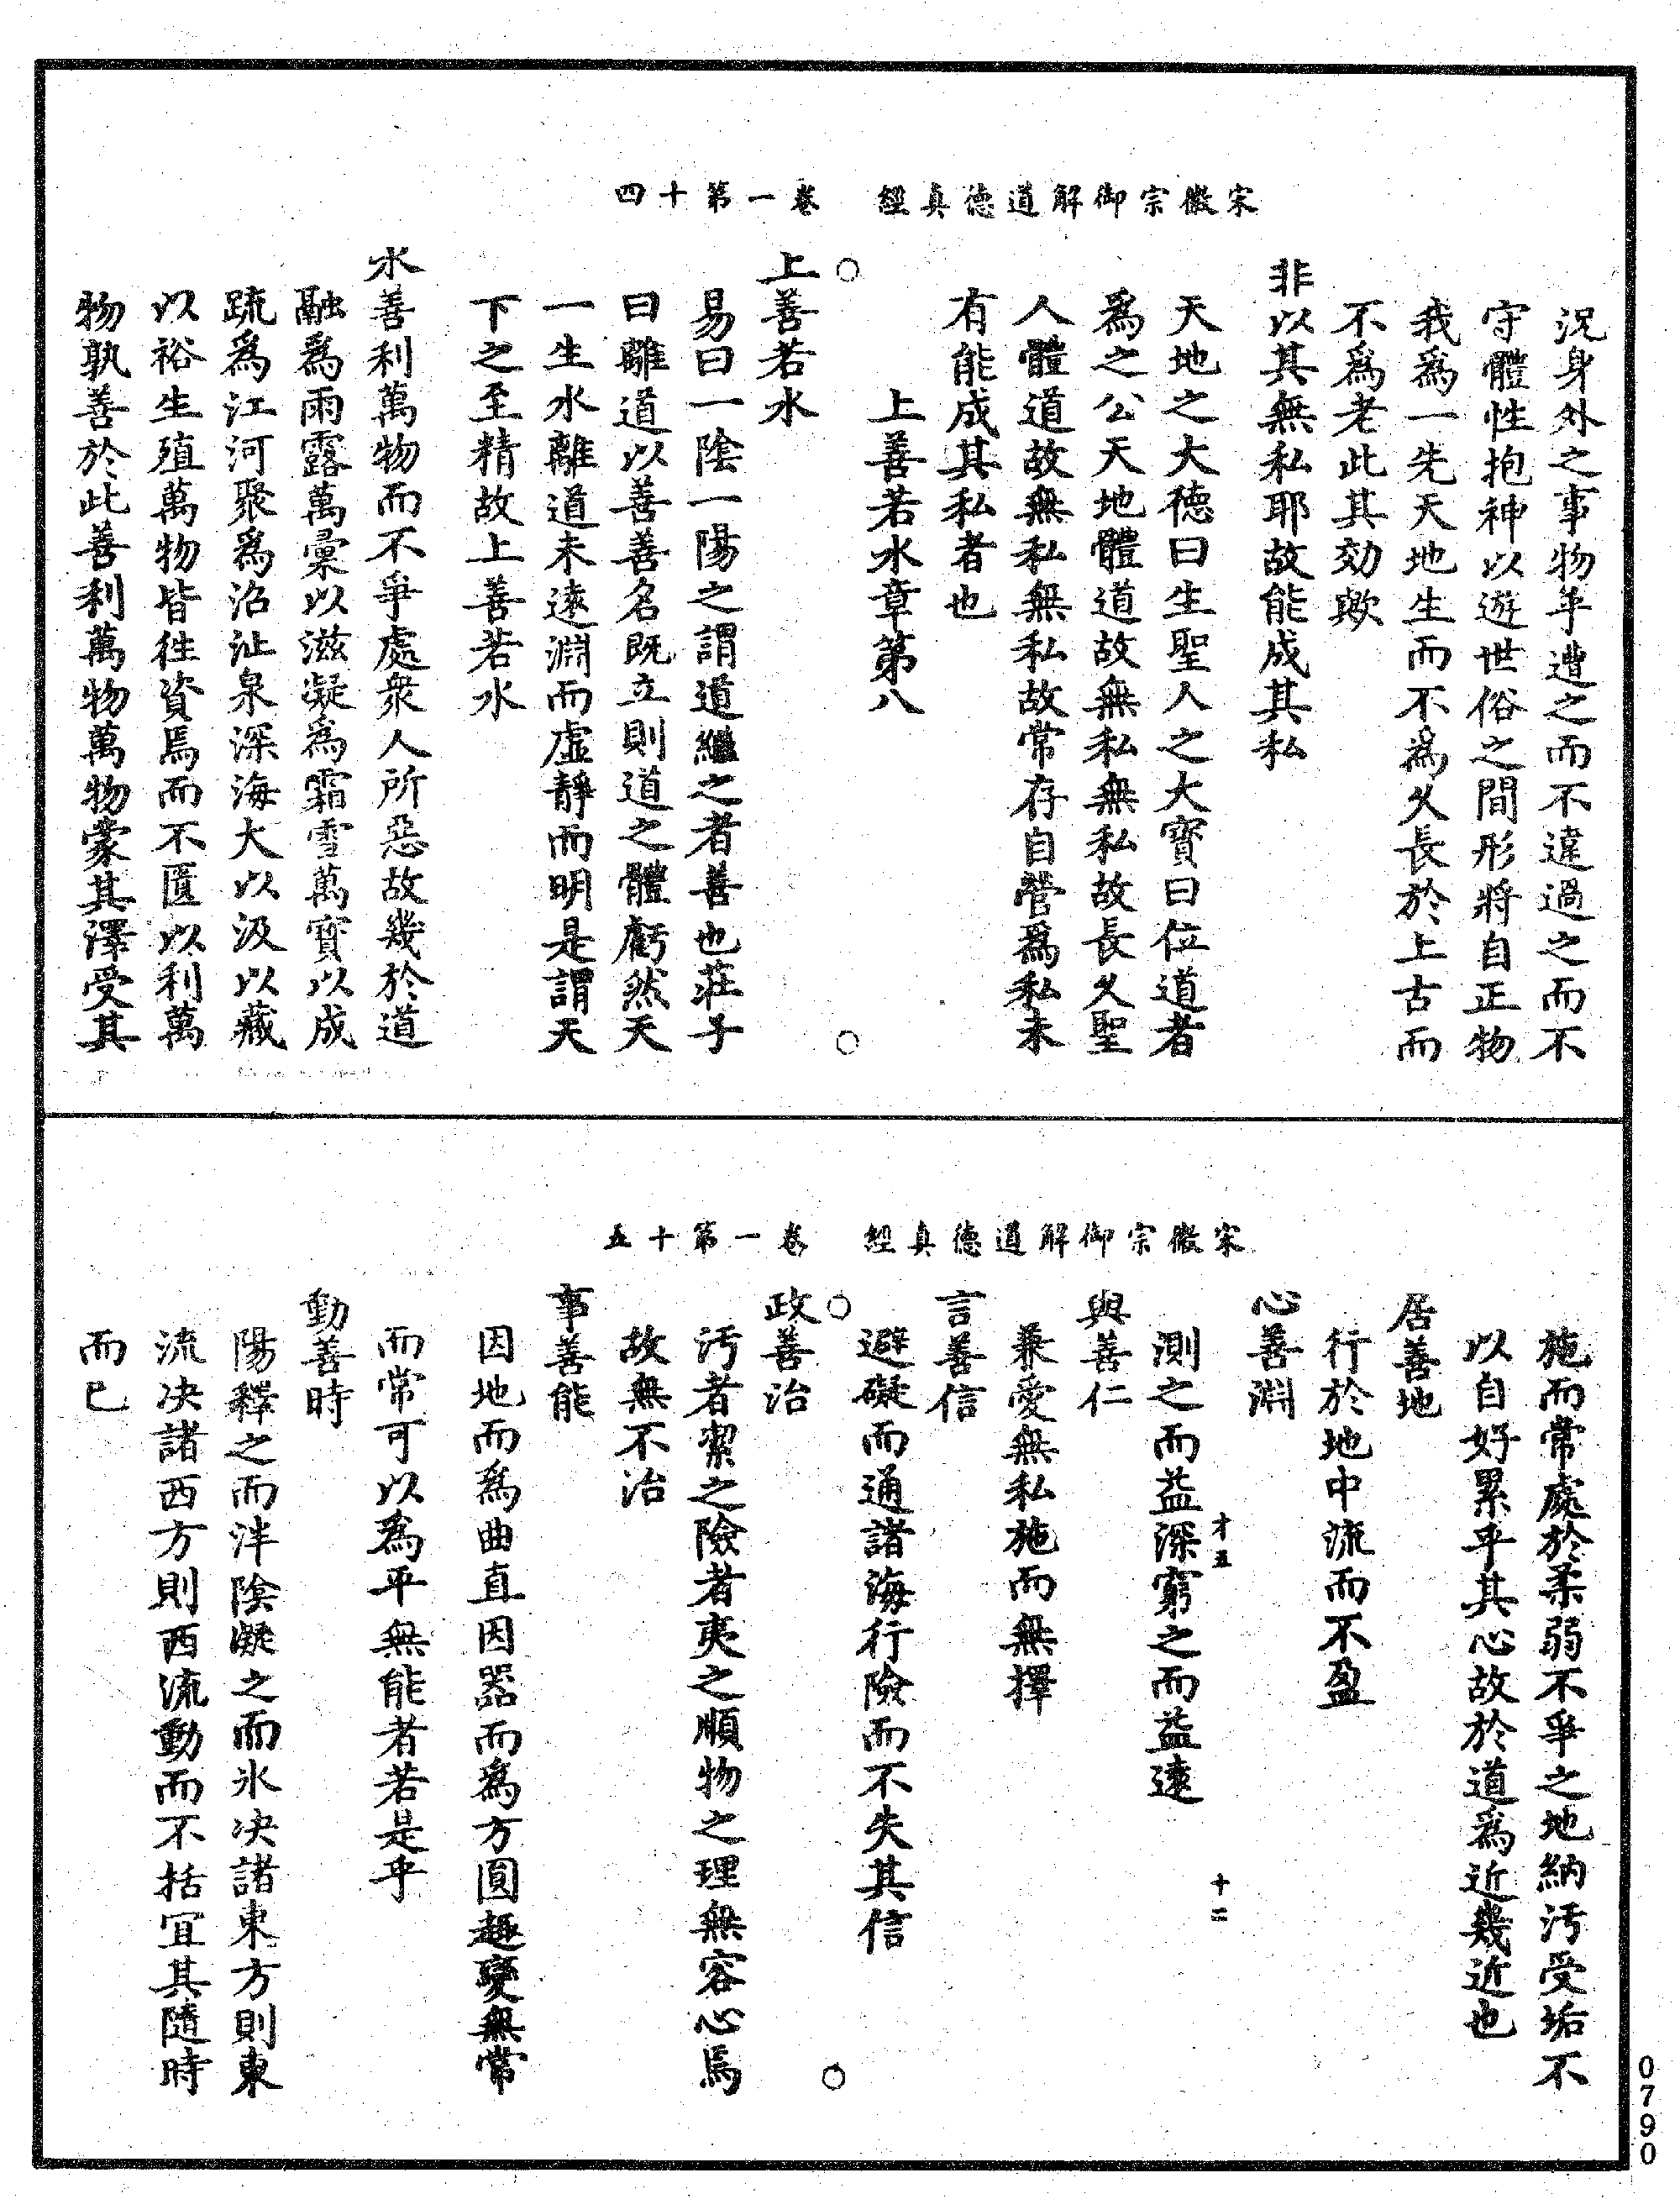 宋徽宗御解道德真經　卷一第十四
況身外之事物乎遭之而不違過之而不
守體性抱神以遊世俗之間形將自正物
我爲一先天地生而不爲久長於上古而
不爲老此其効歟
非以其無私耶故能成其私
天地之大德曰生聖人之大寶曰位道者
爲之公天地體道故無私無私故長久聖
人體道故無私無私故常存自營爲私未
有能成其私者也
上善若水章第八
○　○
上善若水
易曰一陰一陽之謂道繼之者善也莊子
曰離道以善善名既立則道之體虧然天
一生水離道未遠淵而虛靜而明是謂天
下之至精故上善若水
水善利萬物而不爭處衆人所惡故幾於道
融爲雨露萬彙以滋凝爲霜雪萬寶以成
疏爲江河聚爲沼沚泉深海大以汲以藏
以裕生殖萬物皆往資焉而不匱以利萬
物孰善於此善利萬物萬物蒙其澤受其
宋徽宗御解道德真經　卷一第十五
施而常處於柔弱不爭之地納汚受垢不
以自好累乎其心故於道爲近幾近也
居善地
行於地中流而不盈
心善淵
才五　十二
測之而益深窮之而益遠
與善仁
兼愛無私施而無擇
言善信
避礙而通諸海行險而不失其信
○　○
政善治
汚者潔之險者夷之順物之理無容心焉
故無不治
事善能
因地而爲曲直因器而爲方圓趣變無常
而常可以爲平無能者若是乎
動善時
陽釋之而泮陰凝之而氷决諸東方則東
流决諸西方則西流動而不括宜其隨時
而已
0790